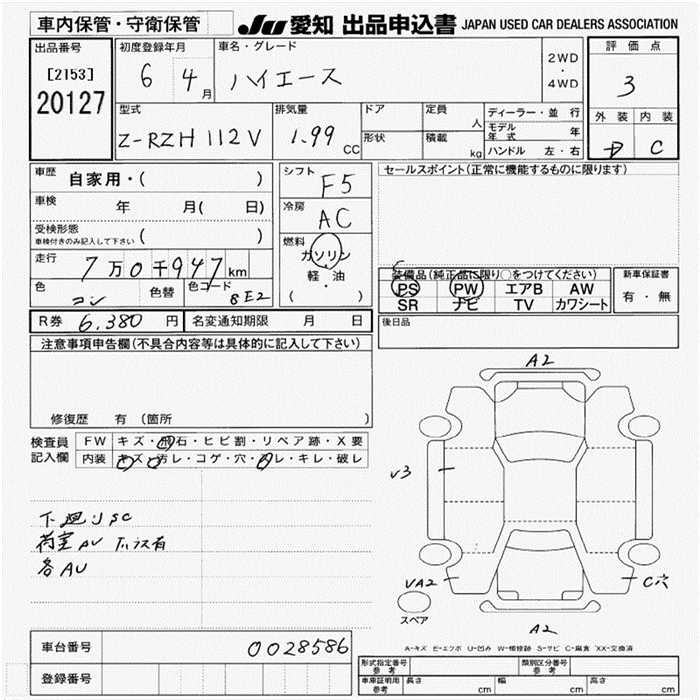 車内保管・守衛保管
JU 愛知 出品申込書 JAPAN USED CAR DEALERS ASSOCIATION
出品番号
[2153]
20127
初度登録年月
6 4月
車名・グレード
ハイエース
2WD
・
4WD
評価点
3
外装 内装
D C
型式
Z-RZH 112V
排気量
1.99 CC
ドア
形状
定員
人
積載
kg
ディーラー・並行
モデル年式 年
ハンドル 左・右
車歴
自家用・( )
車検
年 月( 日)
受検形態
車検付きのみ記入して下さい ( )
走行
7万0千947km
色
コン
色替
色コード
8E2
シフト
F5
冷房
AC
燃料
ガソリン
軽・油
( ・ )
セールスポイント(正常に機能するものに限ります)
装備品(純正品に限り○をつけてください)
PS PW エアB AW
SR ナビ TV カワシート
新車保証書
有・無
R券 6,380円
名変通知期限 月 日
後日品
注意事項申告欄(不具合内容等は具体的に記入して下さい)
修復歴 有 (箇所 )
検査員
記入欄
FW キズ・飛石・ヒビ割・リペア跡・X要
内装 キズ・汚レ・コゲ・穴・スレ・キレ・破レ
下廻りSC
荷室AU
各AU
A2
v3
VA2
C穴
スペア
A2
A-キズ E-エクボ U-凹み W-補修跡 S-サビ C-腐食 XX-交換済
車台番号
0028586
登録番号
形式指定番号
参考
類別区分番号
参考
車庫証明用
参考
長さ cm 幅 cm 高さ cm